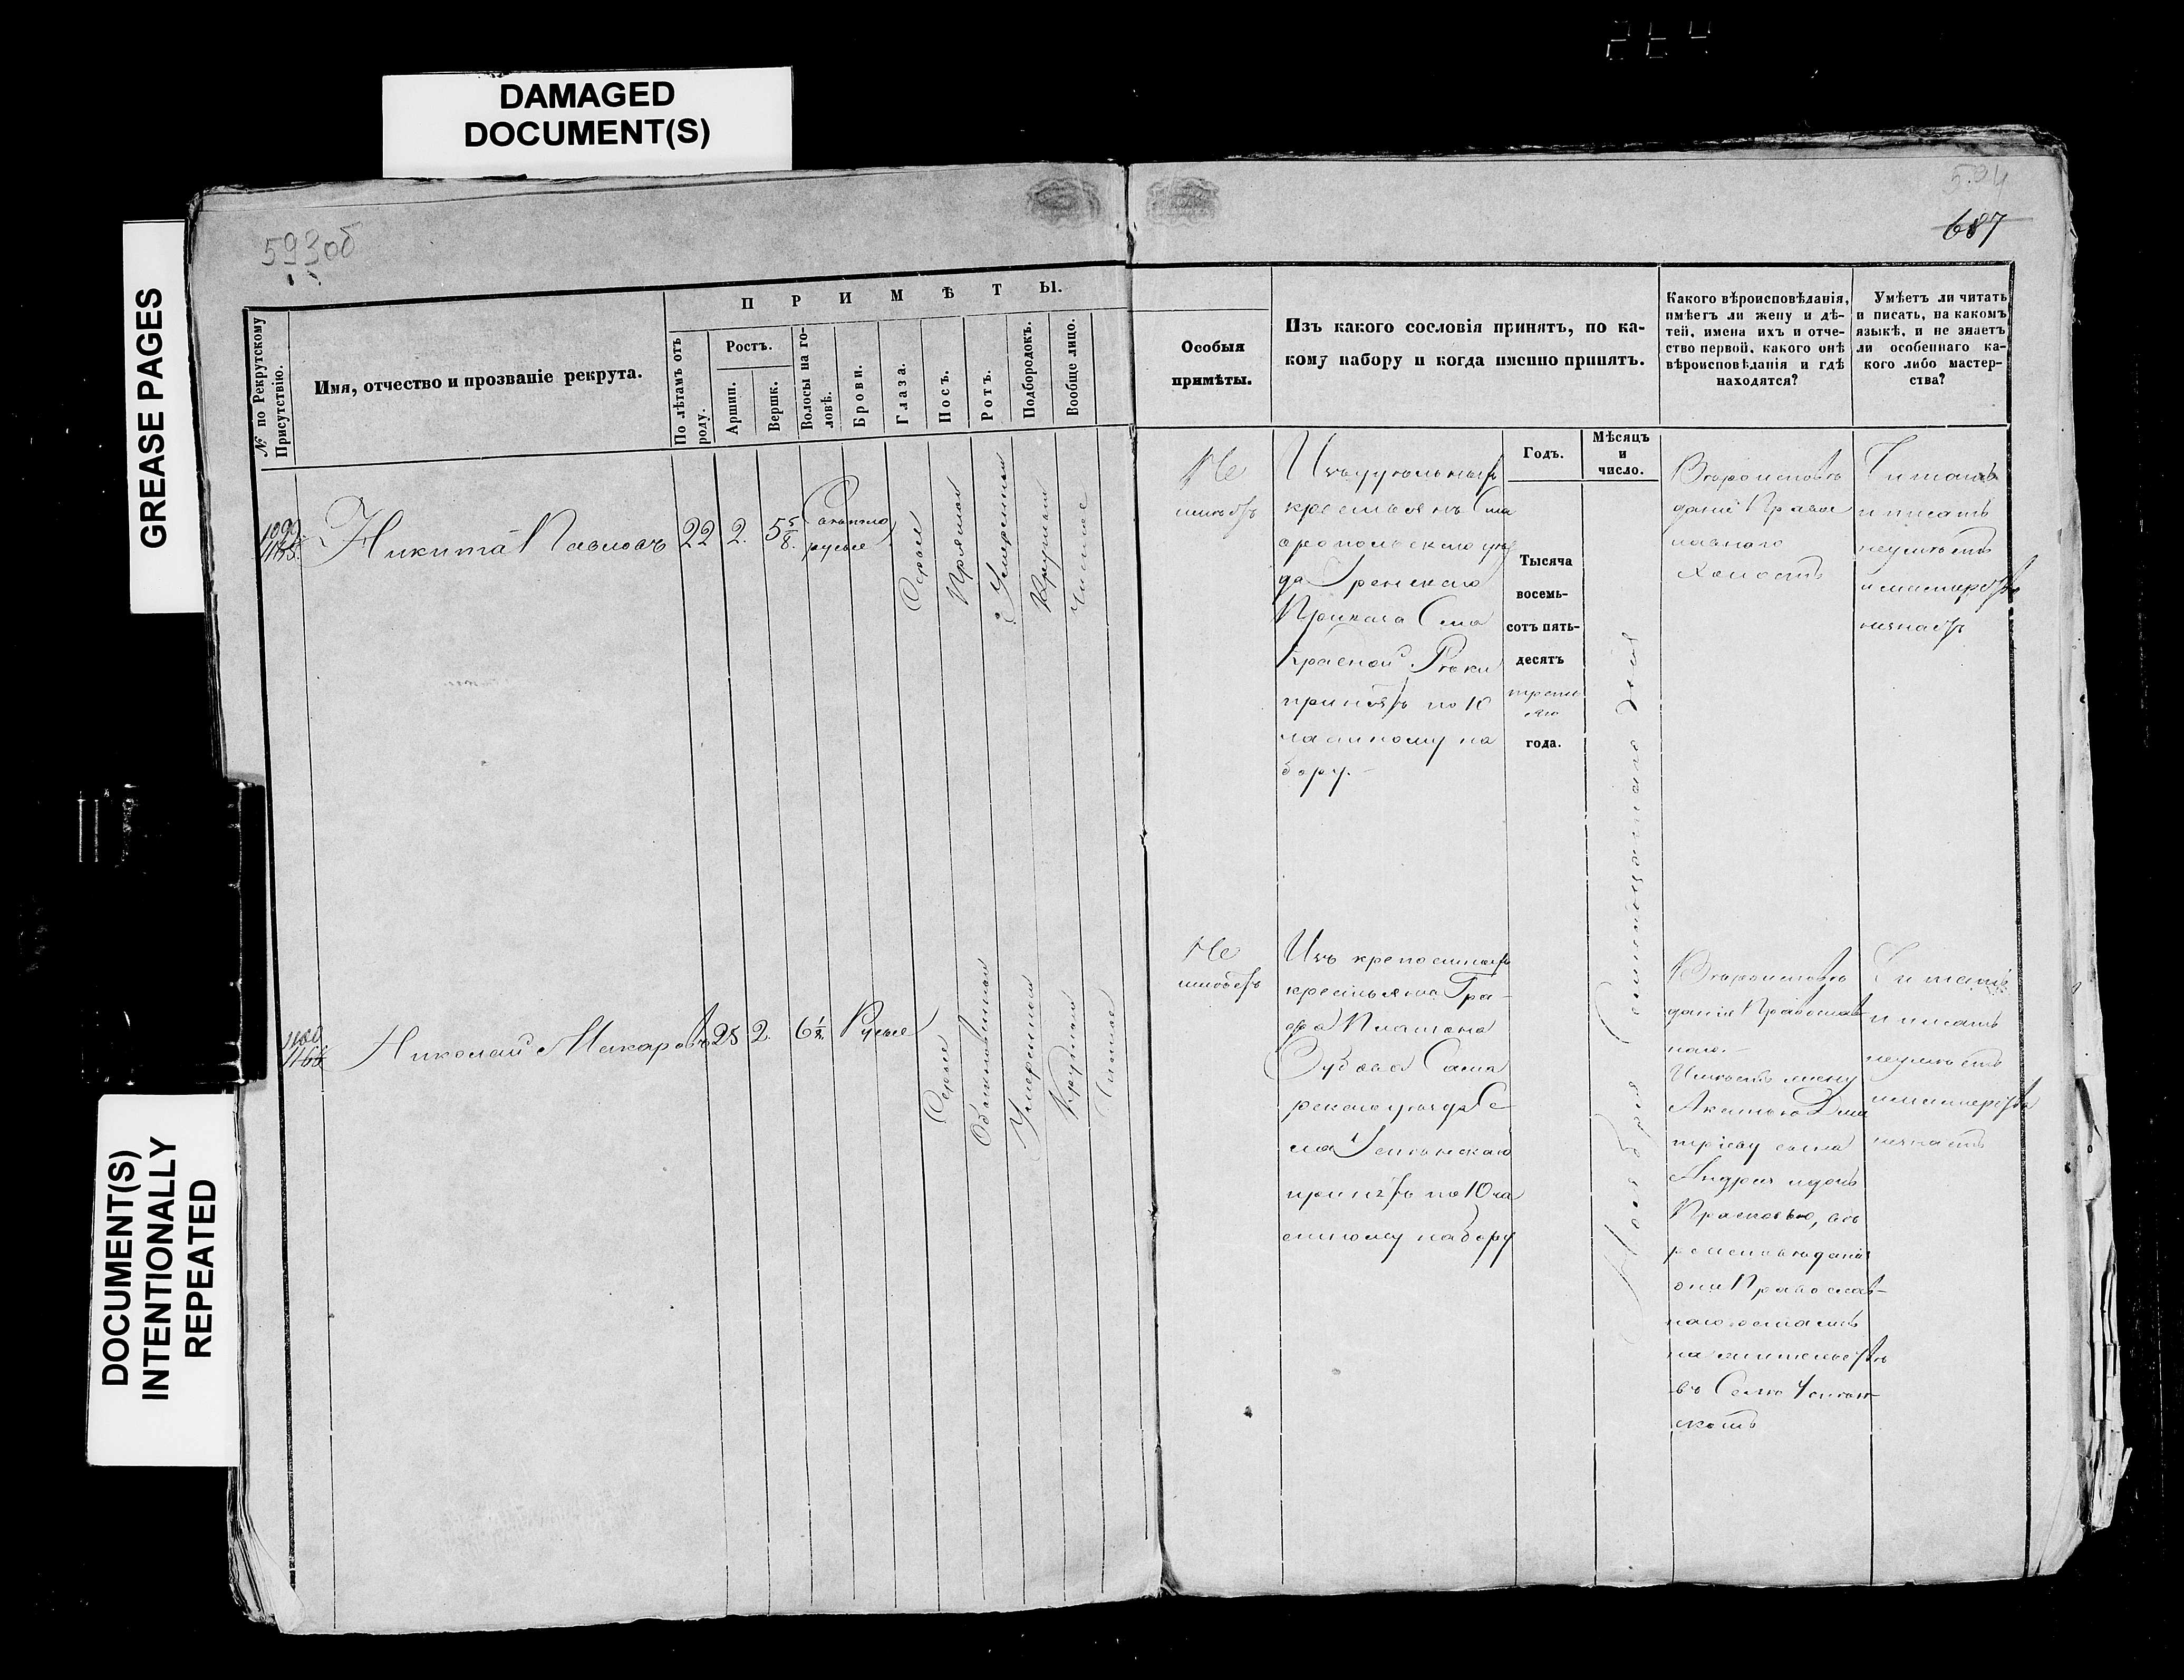 DAMAGED
DOCUMENT(S)
GREASE PAGES
DOCUMENT(S)
INTENTIONALLY
REPEATED
593об
534
687
№ по Рекрутскому
Присутствію.
Имя, отчество и прозваніе рекрута.
ПРИМѢТЫ.
По лѣтамъ отъ
роду.
Ростъ.
Аршин.
Вершк.
Волосы на го-
ловѣ.
Брови.
Глаза.
Носъ.
Ротъ.
Подбородокъ.
Вообще лицо.
Особыя
примѣты.
Изъ какого сословія принятъ, по ка-
кому набору и когда именно принятъ.
Годъ.
Мѣсяцъ
и
число.
Какого вѣроисповѣданія,
имѣетъ ли жену и дѣ-
тей, имена ихъ и отче-
ство первой, какого онѣ
вѣроисповѣданія и гдѣ
находятся?
Умѣетъ ли читать
и писать, на какомъ
языкѣ, и не знаетъ
ли особеннаго ка-
кого либо мастер-
ства?
1099
1165.
Никита Павловъ
22
2.
5 5/8.
Свѣтло
русые
Сѣрые
Прямой
Умеренный
Круглый
Чистое
Не
имѣетъ
Изъ удѣльныхъ
крестьянъ Ста
вропольскаго уѣз
да
Приказа Села
Красной Рѣки
принятъ по 10
частному на
бору.
Тысяча
восемь-
сотъ пять-
десятъ
третья
его
года.
Ноября Семнадцатаго дня
Вѣроисповѣ
данія Правос
лавнаго
Холостъ
Читать
и писать
неумѣетъ
и мастерства
незнаетъ
1100
1166
Николай Макаровъ
25
2.
6 1/2.
Русые
Сѣрые
Обыкновенный
Умеренный
Круглый
Чистое
Не
имѣетъ
Изъ крепостныхъ
крестьянъ Гра-
фа Платона
Зубова Сама
рскаго уѣзда Се-
ла
принятъ по 10 ча
стному набору
Вѣроисповѣ
данія Православ
наго.
Имѣетъ жену
Дми
тріеву сына
Андрея и дочь
Прасковью, вѣ
роисповѣданія
они Православ-
наго
на жительствѣ
въ Селѣ
скомъ
Читать
и писать
неумѣетъ
и мастерства
незнаетъ